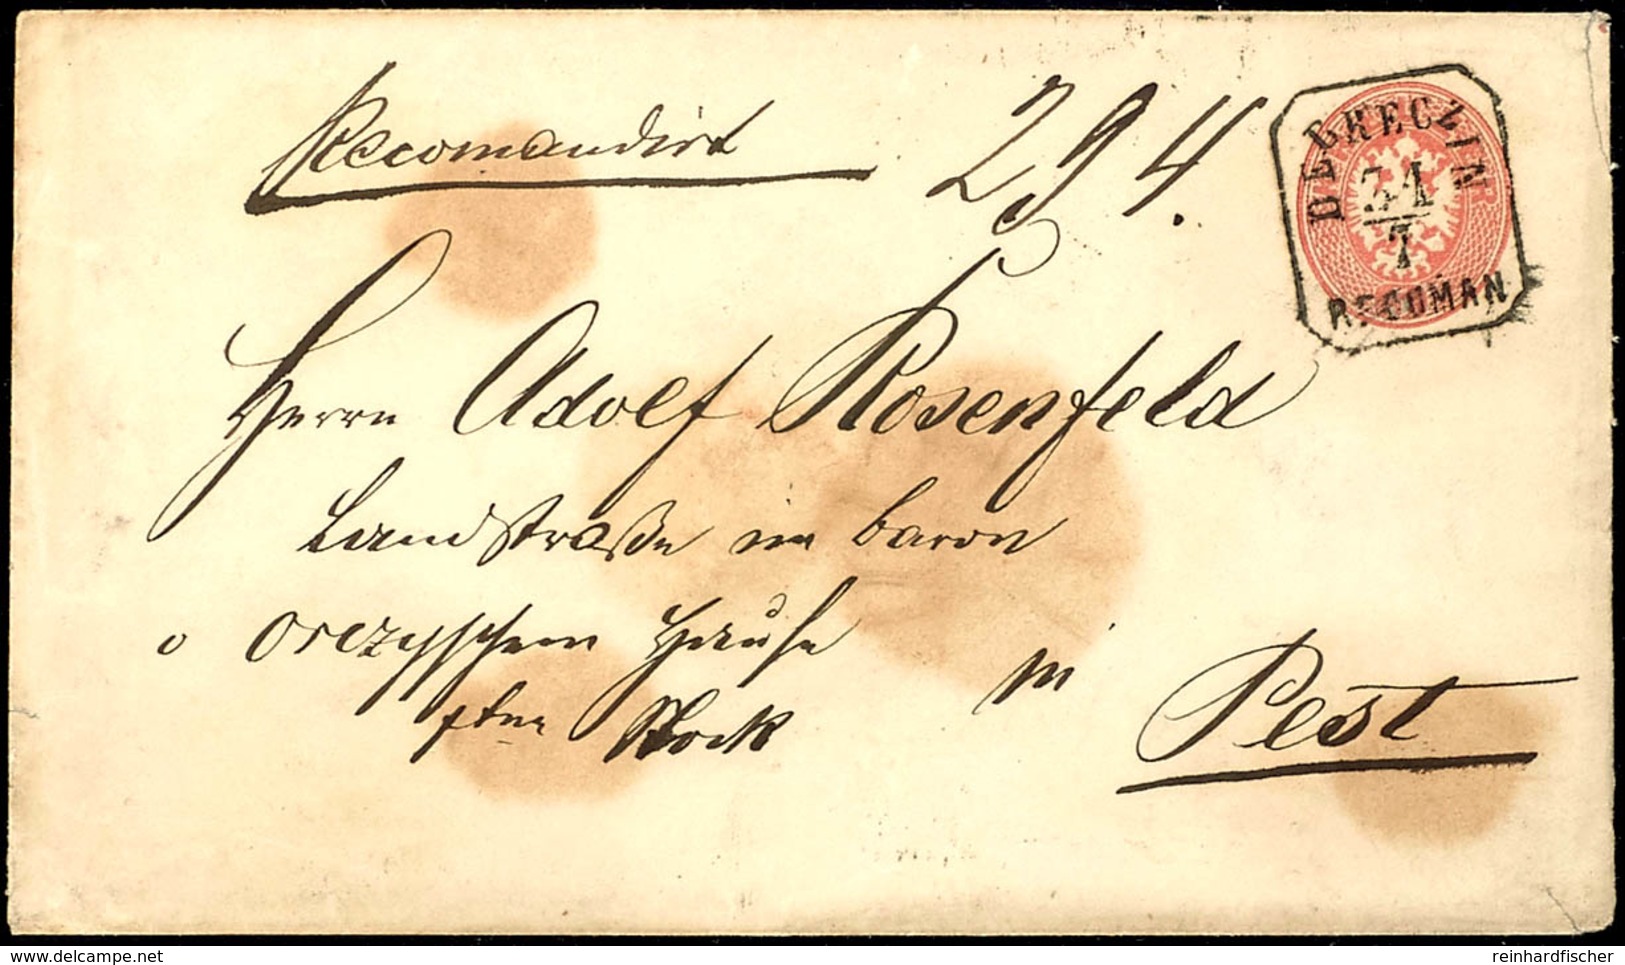 Recomandirt 294.
DEBRECZIN
31
7
RECOMAN
Herrn Adolf Rosenfeld
Landstraße im Baron
Orczyschen Hause
Stock
in Pest
www.delcampe.net
reinhardfischer